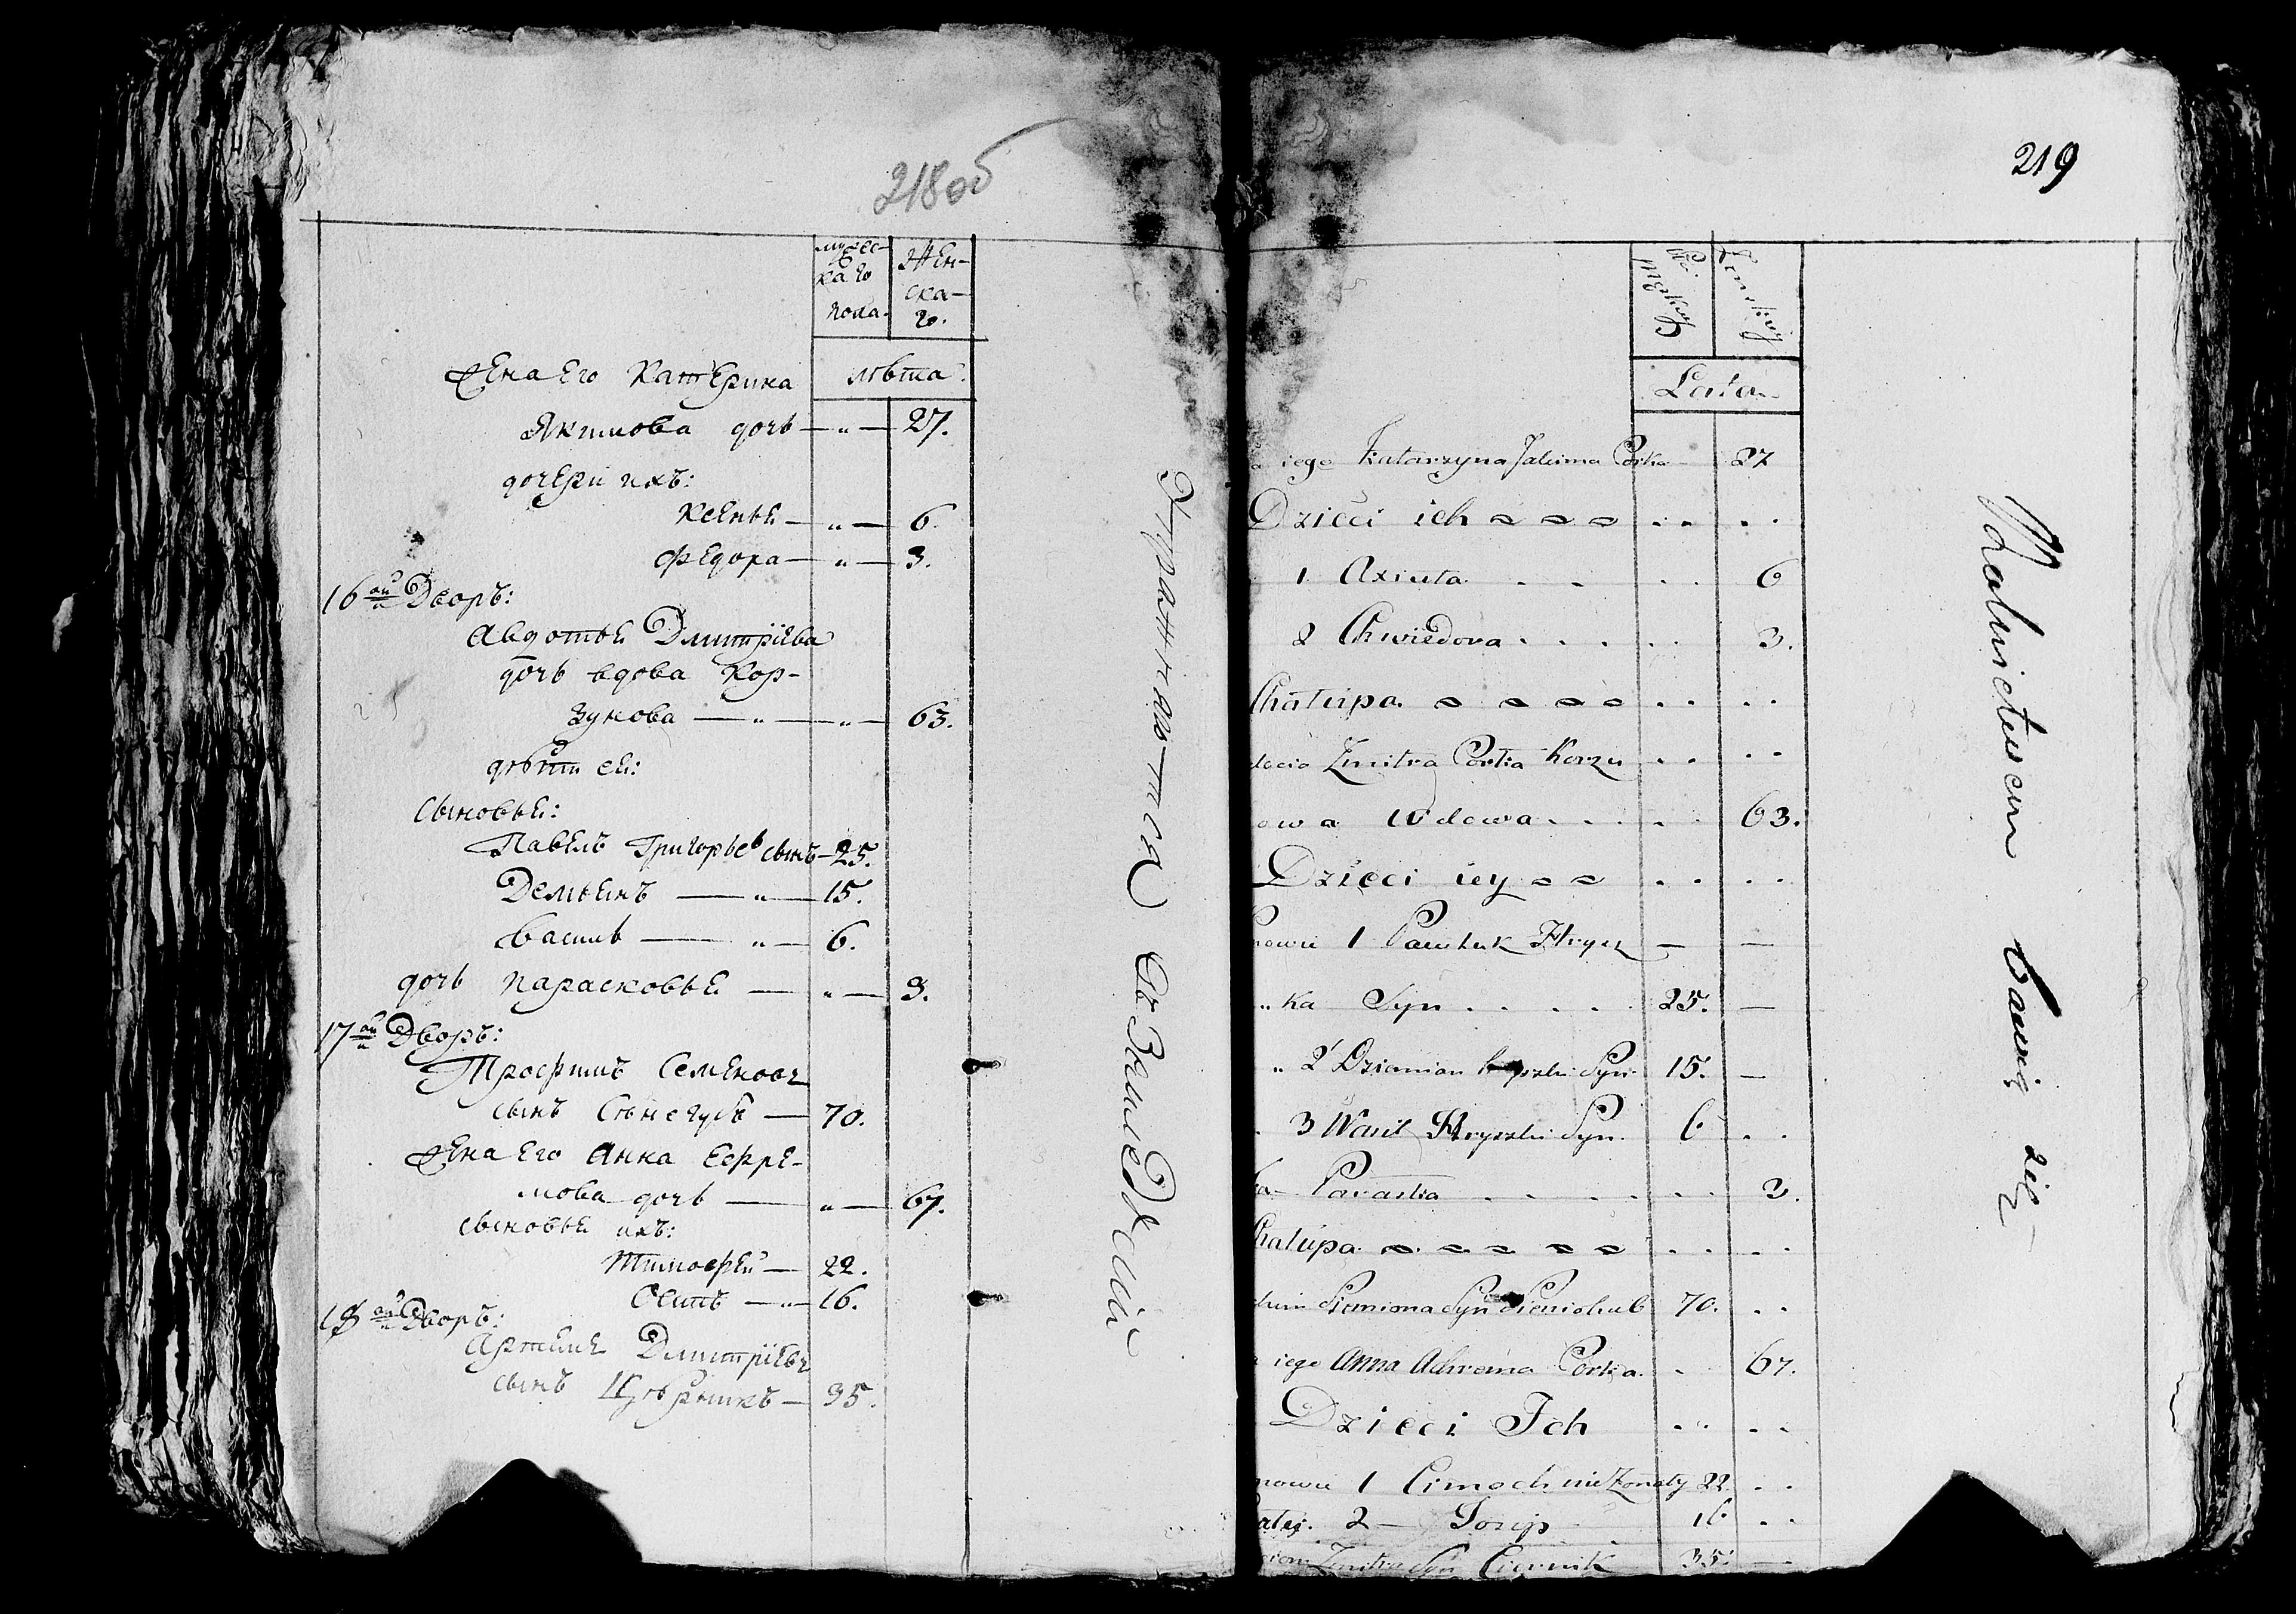 218об
мужес-
каго
пола.
жен-
ска-
го.
лѣта.
жена его Катерина
Якимова дочь — „ — 27.
дочери ихъ:
Ксенья — „ — 6.
Федора — „ — 3.
16ый Дворъ:
Авдотья Дмитріева
дочь вдова Кор-
зунова — „ — „ — 63.
дѣти ея:
сыновья:
Павелъ Григорьевъ сынъ — 25.
Демьянъ — „ — 15.
Василь — „ — 6.
дочь Парасковья — „ — 3.
17ый Дворъ:
Трофимъ Семеновъ
сынъ Сѣнегубъ — 70.
жена его Анна Ефре-
мова дочь — „ — 67.
сыновья ихъ:
Тимофей — 22.
Осипъ — „ — 16.
18ый Дворъ:
Артемъ Дмитріевъ
сынъ — 35.
219
Męzkiey
Zenskiey
Lata
iego Katarzyna Jakima Corka 27
Dzieci ich
1 Axiuta 6
2 Chwiedora 3.
Chałupa
docia Zmitra Corka Korzu
owa Wdowa 63.
Dzieci iey
nowie 1 Pawluk Hrysz
„ ka Syn 25. —
„ 2 Dziamian Syn 15. —
3 Wasil Hryszki Syn 6
ka Paraska 3.
Chałupa
Siemiona Syn Sieniohub 70.
iego Anna Achrema Corka 67.
Dzieci Ich
nowie 1 Cimoch nieżonaty 22
2 — Josip 16
Zmitra Syn 35. —